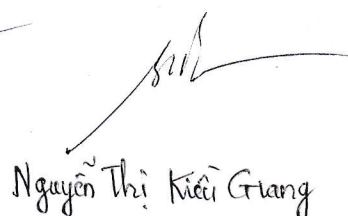 Nguyễn Thị Kiều Giang